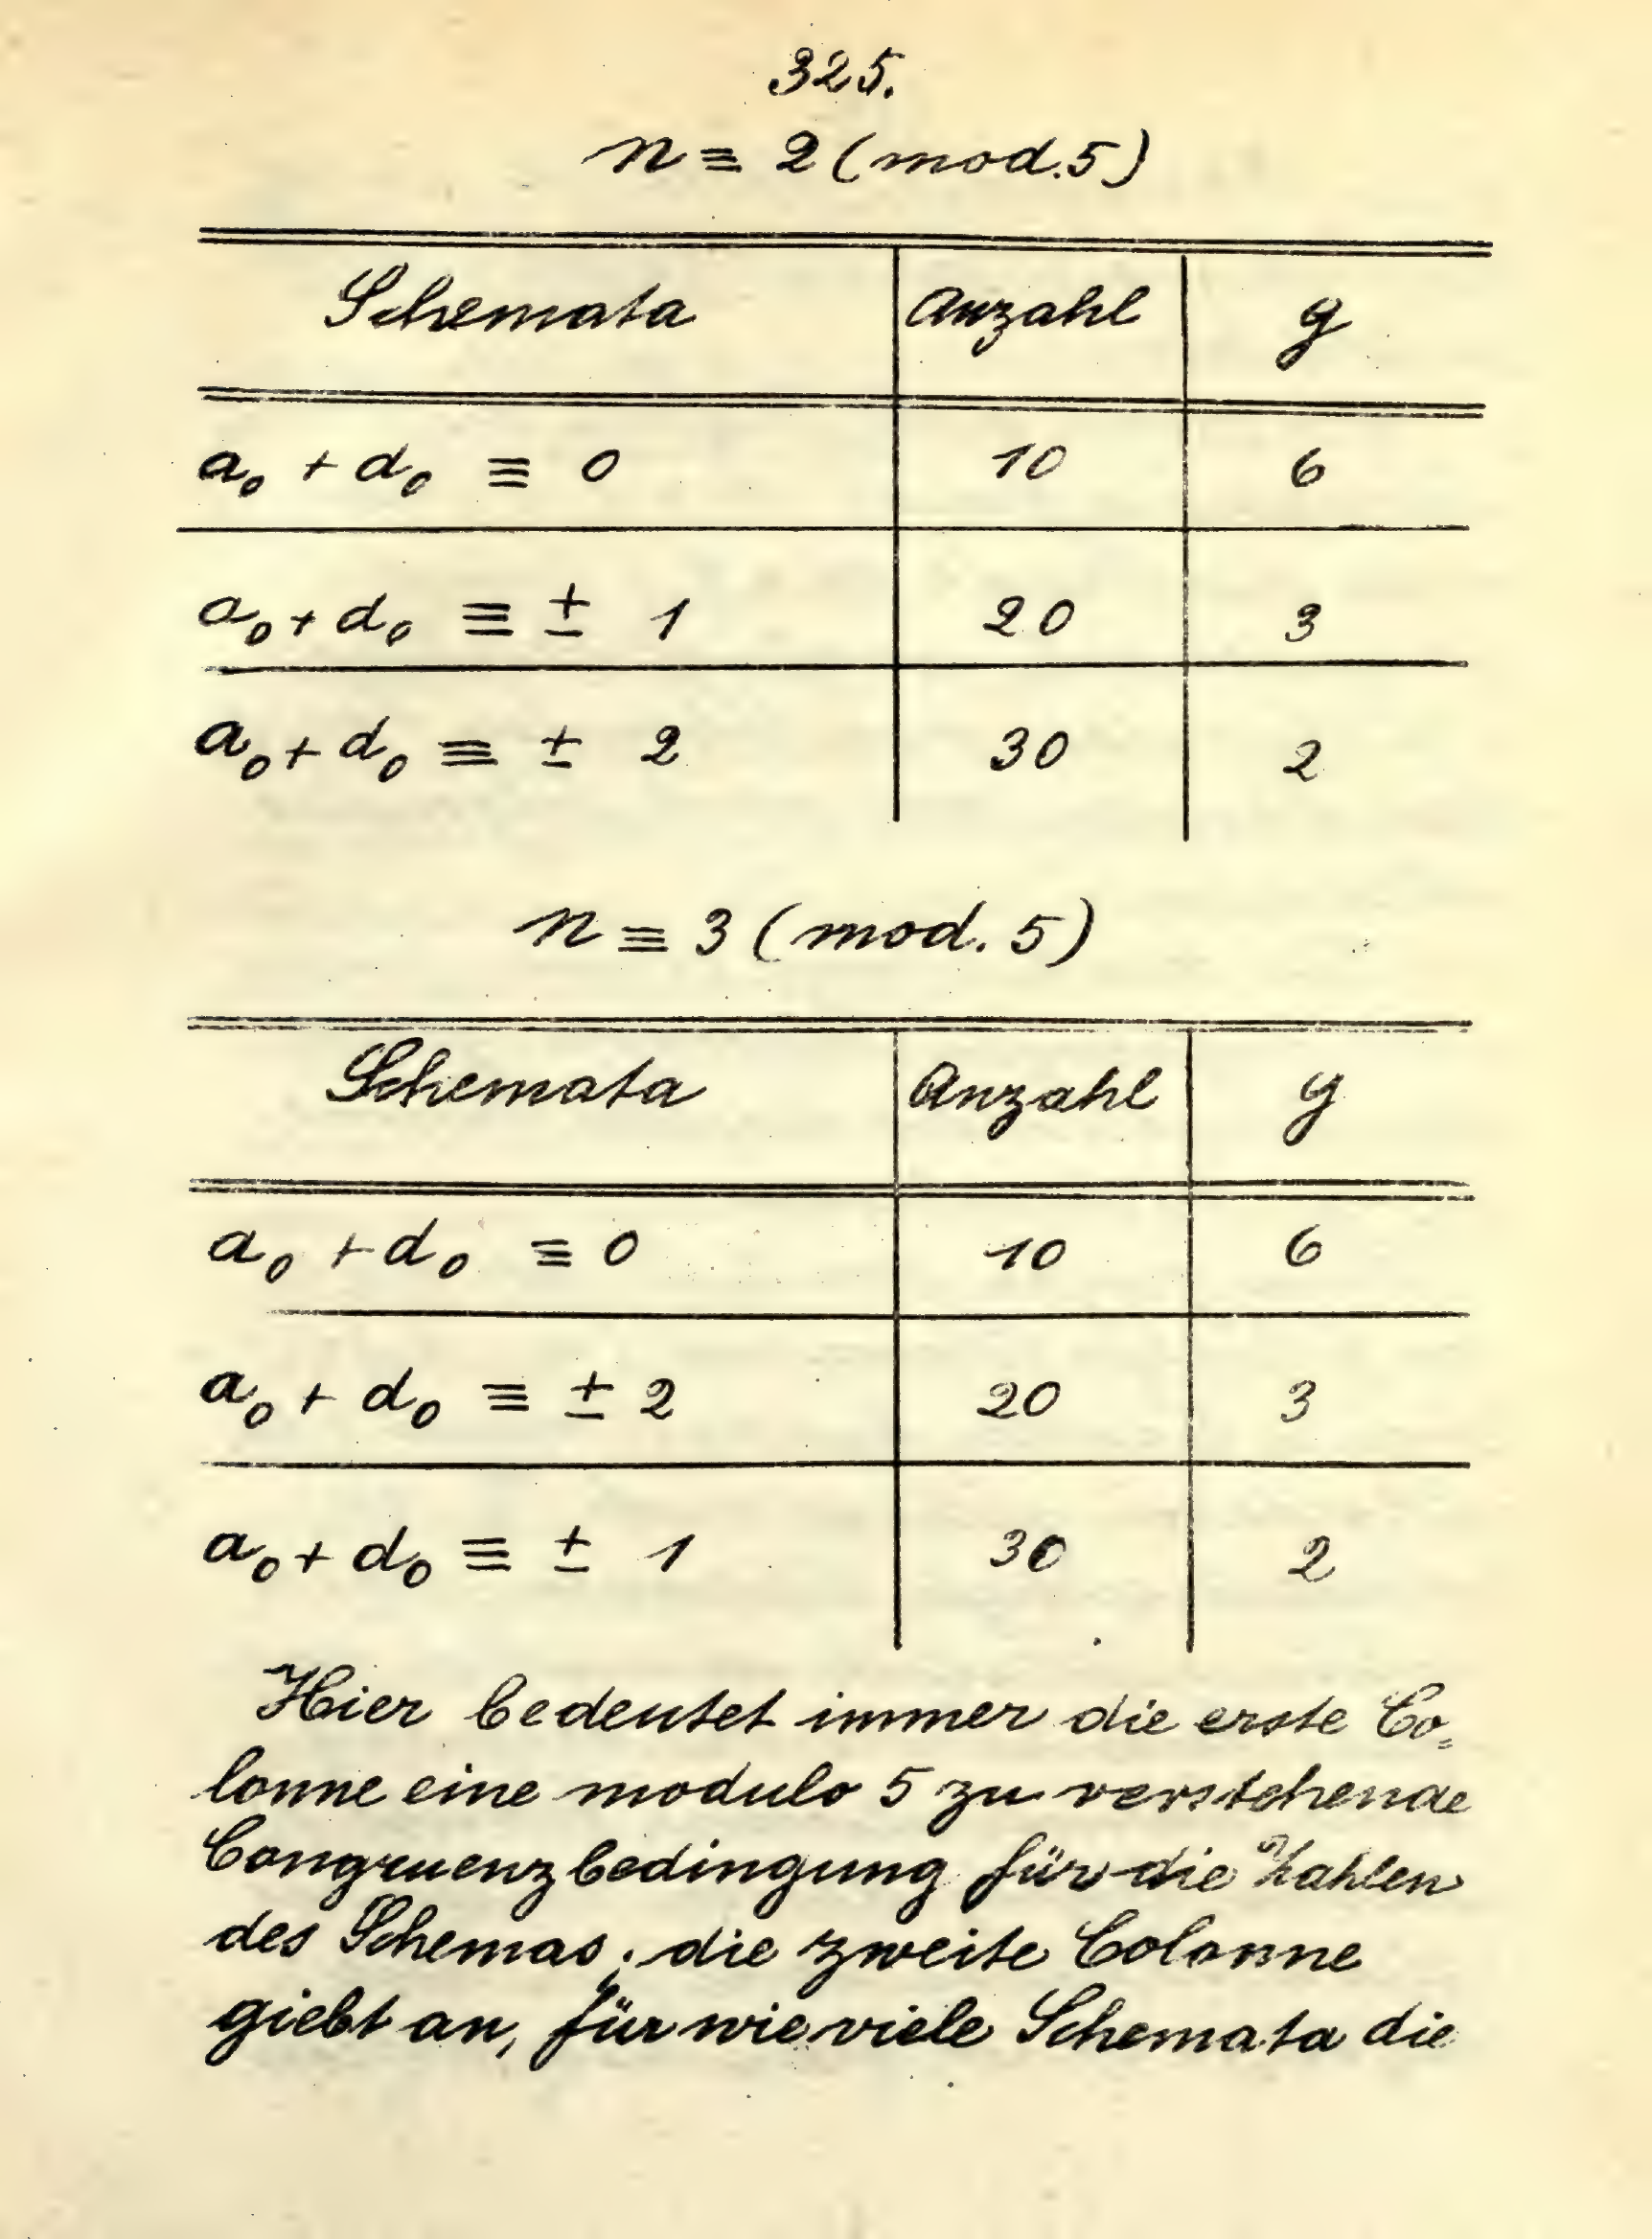 325.
n ≡ 2 (mod. 5)
Schemata Anzahl g
a₀ + d₀ ≡ 0 10 6
a₀ + d₀ ≡ ± 1 20 3
a₀ + d₀ ≡ ± 2 30 2
n ≡ 3 (mod. 5)
Schemata Anzahl g
a₀ + d₀ ≡ 0 10 6
a₀ + d₀ ≡ ± 2 20 3
a₀ + d₀ ≡ ± 1 30 2
Hier bedeutet immer die erste Co=
lonne eine modulo 5 zu verstehende
Congruenzbedingung für die Zahlen
des Schemas; die zweite Colonne
giebt an, für wie viele Schemata die